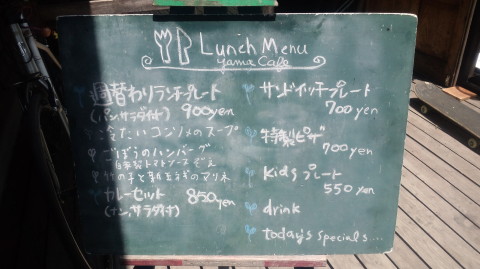 Lunch Menu
yama Cafe
週替わりランチプレート
(パン,サラダ付) 900yen
冷たいコンソメのスープ
ごぼうのハンバーグ
自家製トマトソース ぞえ
竹の子と新玉ネギのマリネ
カレーセット 850yen
(ナン,サラダ付)
サンドイッチプレート
700yen
特製ピザ
700yen
kids プレート
550yen
drink
today's specials...